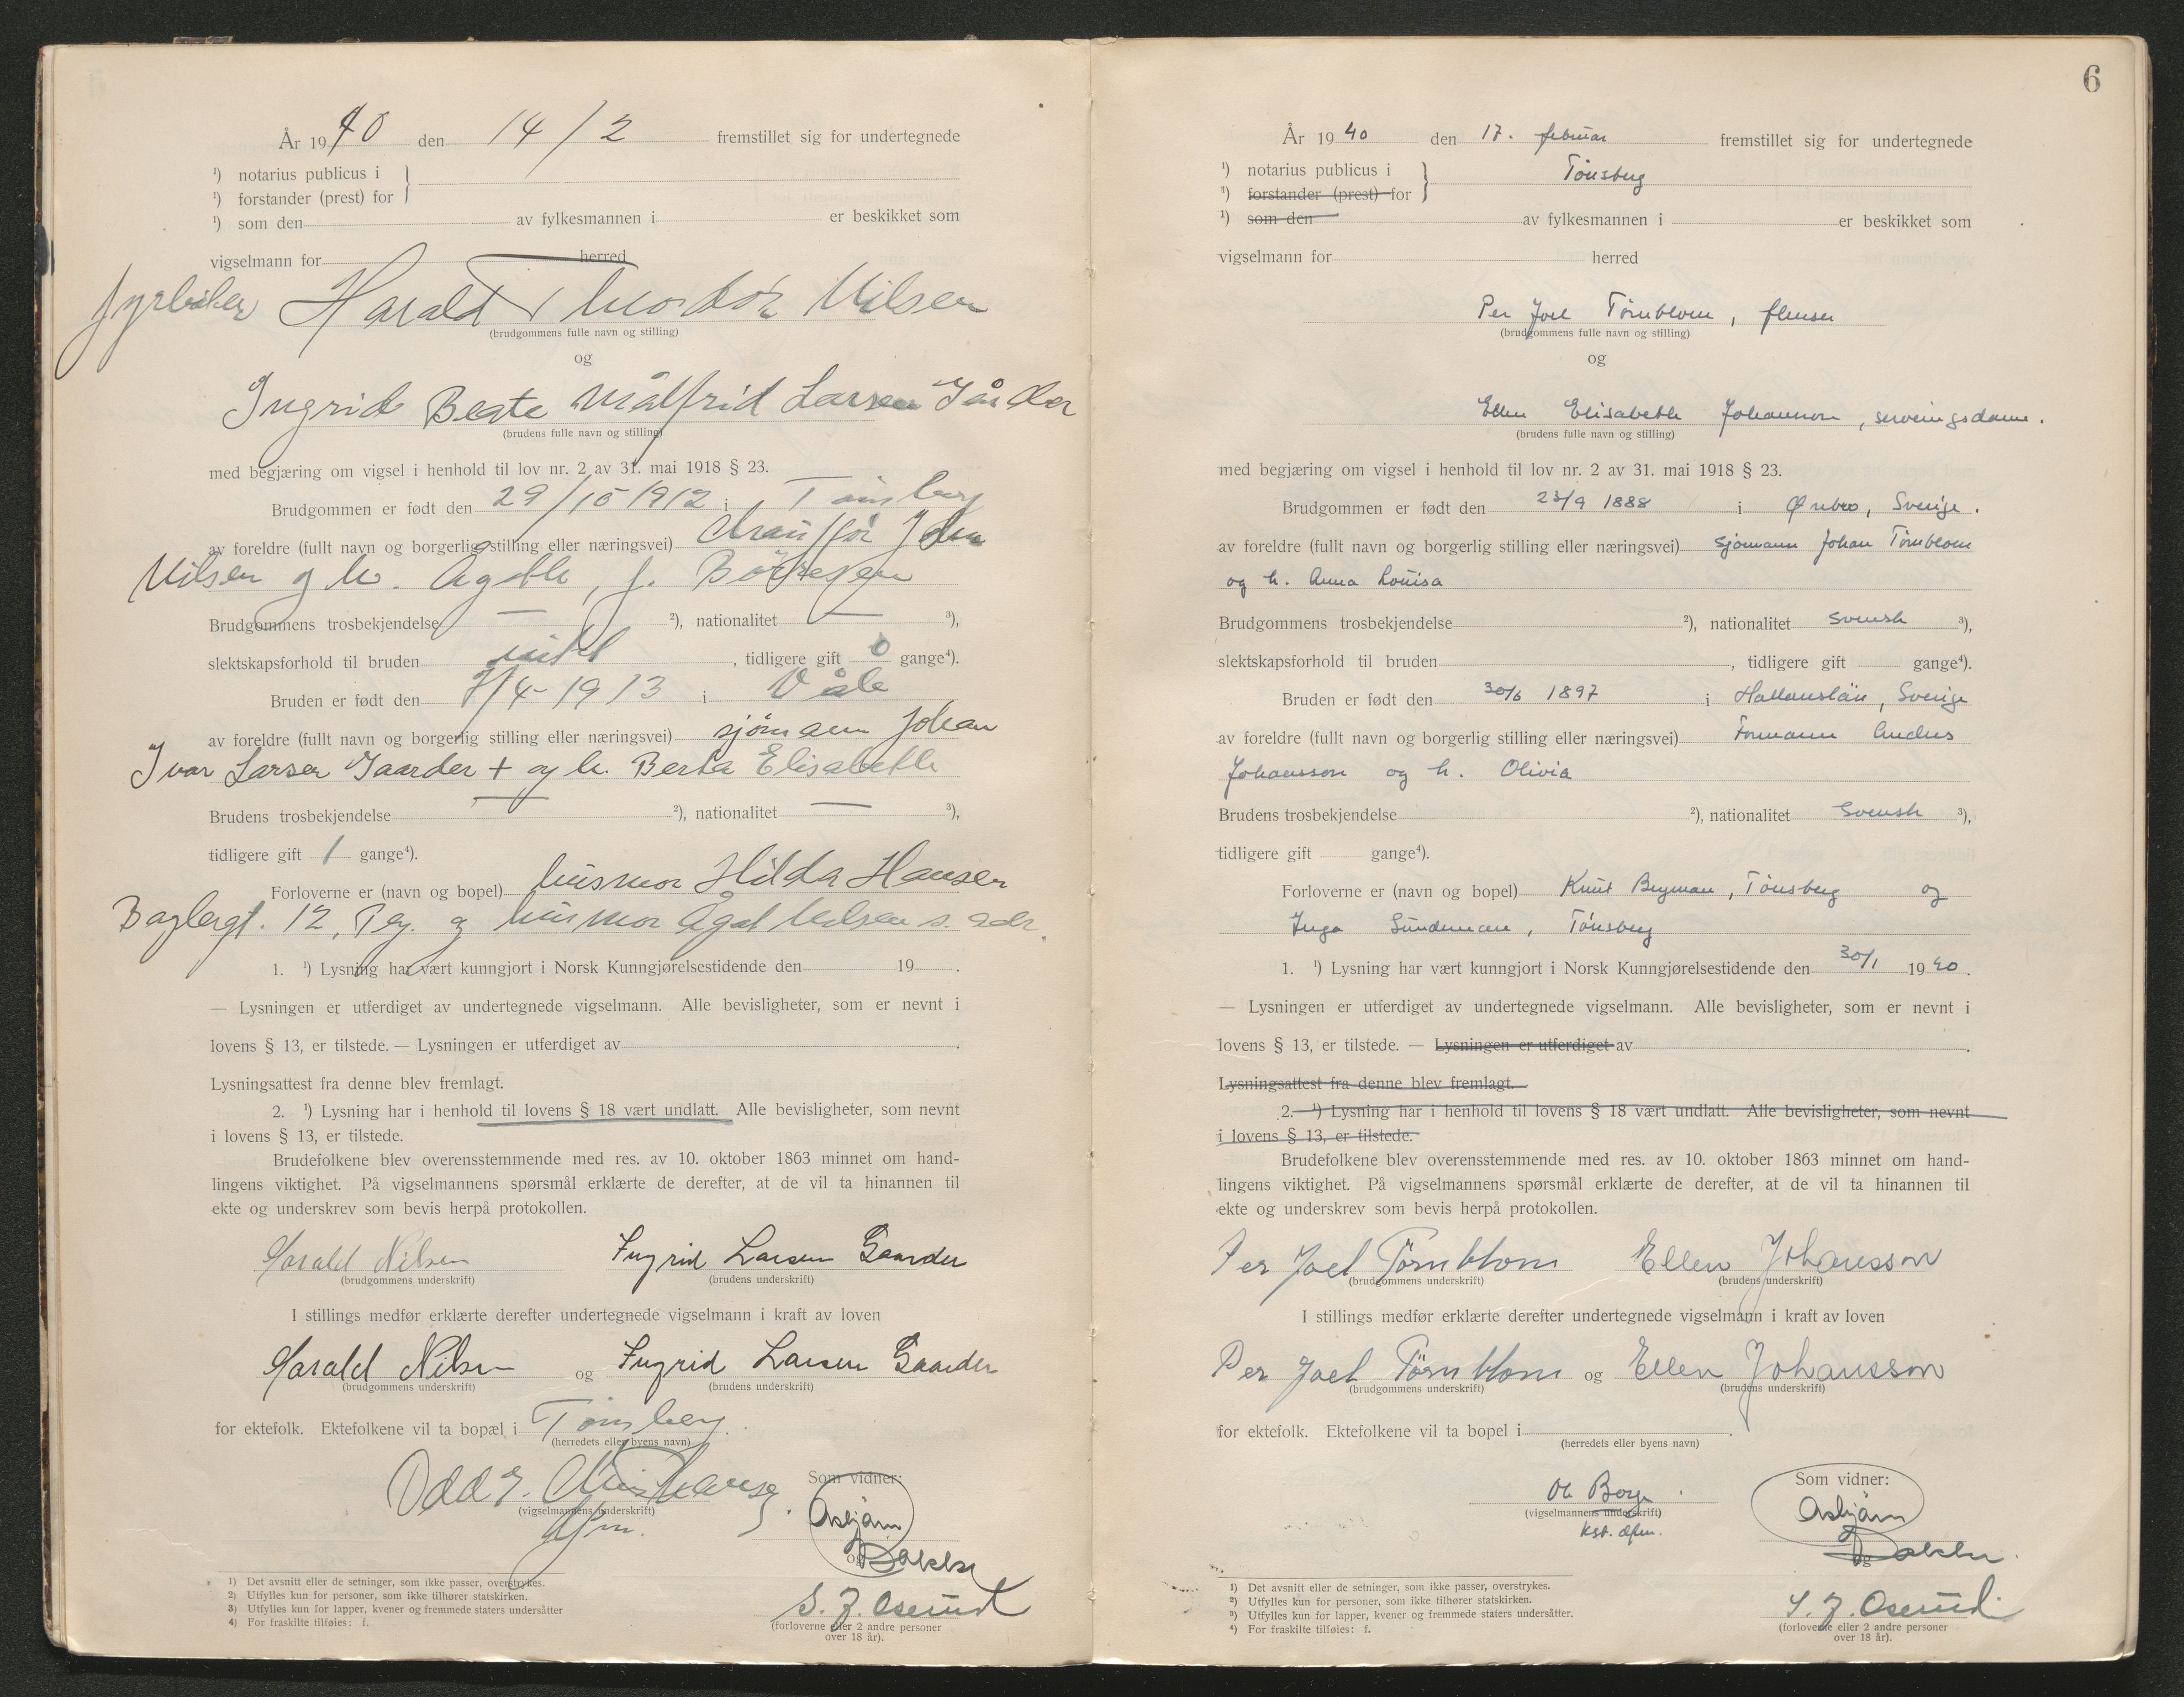 År 1940 den 14/2 fremstillet sig for undertegnede
¹) notarius publicus i
¹) forstander (prest) for
¹) som den av fylkesmannen i er beskikket som
vigselmann for herred
fyrbøter Harald Thorbør Nilsen
(brudgommens fulle navn og stilling)
og
Ingrid Beate Målfrid Larsen Gårder
(brudens fulle navn og stilling)
med begjæring om vigsel i henhold til lov nr. 2 av 31. mai 1918 § 23.
Brudgommen er født den 29/10 1912 i Tønsberg
av foreldre (fullt navn og borgerlig stilling eller næringsvei) chauffør John
Nilsen og h. Ågoth, f. Børresen
Brudgommens trosbekjendelse — ²), nationalitet — ³),
slektskapsforhold til bruden intet, tidligere gift 0 gange⁴).
Bruden er født den 7/4-1913 i Våle
av foreldre (fullt navn og borgerlig stilling eller næringsvei) sjømann Johan
Ivar Larsen Gaarder + og h. Berta Elisabeth
Brudens trosbekjendelse — ²), nationalitet — ³),
tidligere gift 1 gange⁴).
Forloverne er (navn og bopel) husmor Hilda Hansen
Baglergt. 12, Tbg. og husmor Ågot Nilsen s. adr.
1. ¹) Lysning har vært kunngjort i Norsk Kunngjørelsestidende den 19 .
— Lysningen er utferdiget av undertegnede vigselmann. Alle bevisligheter, som er nevnt i
lovens § 13, er tilstede. — Lysningen er utferdiget av .
Lysningsattest fra denne blev fremlagt.
2. ¹) Lysning har i henhold til lovens § 18 vært undlatt. Alle bevisligheter, som nevnt
i lovens § 13, er tilstede.
Brudefolkene blev overensstemmende med res. av 10. oktober 1863 minnet om hand-
lingens viktighet. På vigselmannens spørsmål erklærte de derefter, at de vil ta hinannen til
ekte og underskrev som bevis herpå protokollen.
Harald Nilsen Ingrid Larsen Gaarder
(brudgommens underskrift) (brudens underskrift)
I stillings medfør erklærte derefter undertegnede vigselmann i kraft av loven
Harald Nilsen og Ingrid Larsen Gaarder
(brudgommens underskrift) (brudens underskrift)
for ektefolk. Ektefolkene vil ta bopæl i Tønsberg.
(herredets eller byens navn)
Odd E. Christiansen
(vigselmannens underskrift)
dfm.
Som vidner:
Asbjørn
og Bakke
S. J. Oserud
(forloverne eller 2 andre personer
over 18 år).
1) Det avsnitt eller de setninger, som ikke passer, overstrykes.
2) Utfylles kun for personer, som ikke tilhører statskirken.
3) Utfylles kun for lapper, kvener og fremmede staters undersåtter
4) For fraskilte tilføies: f.
6
År 1940 den 17. februar fremstillet sig for undertegnede
¹) notarius publicus i Tønsberg
¹) forstander (prest) for
¹) som den av fylkesmannen i er beskikket som
vigselmann for herred
Per Joel Törnblom, flenser
(brudgommens fulle navn og stilling)
og
Ellen Elisabeth Johansson, serveringsdame.
(brudens fulle navn og stilling)
med begjæring om vigsel i henhold til lov nr. 2 av 31. mai 1918 § 23.
Brudgommen er født den 23/9 1888 i Ørebro, Sverige.
av foreldre (fullt navn og borgerlig stilling eller næringsvei) sjømann Johan Törnblom
og h. Anna Lovisa
Brudgommens trosbekjendelse ²), nationalitet svensk ³),
slektskapsforhold til bruden , tidligere gift gange⁴).
Bruden er født den 30/6 1897 i Hallanslän, Sverige
av foreldre (fullt navn og borgerlig stilling eller næringsvei) Formann Anders
Johansson og h. Olivia
Brudens trosbekjendelse ²), nationalitet svensk ³),
tidligere gift gange⁴).
Forloverne er (navn og bopel) Knut Bryman, Tønsberg og
Inga Sundeman, Tønsberg
1. ¹) Lysning har vært kunngjort i Norsk Kunngjørelsestidende den 30/1 1940.
— Lysningen er utferdiget av undertegnede vigselmann. Alle bevisligheter, som er nevnt i
lovens § 13, er tilstede. — Lysningen er utferdiget av .
Lysningsattest fra denne blev fremlagt.
2. ¹) Lysning har i henhold til lovens § 18 vært undlatt. Alle bevisligheter, som nevnt
i lovens § 13, er tilstede.
Brudefolkene blev overensstemmende med res. av 10. oktober 1863 minnet om hand-
lingens viktighet. På vigselmannens spørsmål erklærte de derefter, at de vil ta hinannen til
ekte og underskrev som bevis herpå protokollen.
Per Joel Törnblom Ellen Johansson
(brudgommens underskrift) (brudens underskrift)
I stillings medfør erklærte derefter undertegnede vigselmann i kraft av loven
Per Joel Törnblom og Ellen Johansson
(brudgommens underskrift) (brudens underskrift)
for ektefolk. Ektefolkene vil ta bopel i .
(herredets eller byens navn)
Ole Borge.
(vigselmannens underskrift)
kst. dfm.
Som vidner:
Asbjørn
og Bakke.
S. J. Oserud
(forloverne eller 2 andre personer
over 18 år).
¹) Det avsnitt eller de setninger, som ikke passer, overstrykes.
²) Utfylles kun for personer, som ikke tilhører statskirken.
³) Utfylles kun for lapper, kvener og fremmede staters undersåtter.
⁴) For fraskilte tilføies: f.